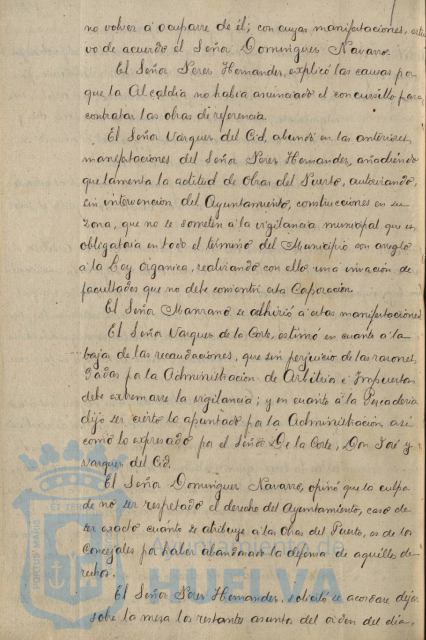 no volver á ocuparse de él; con cuyas manifestaciones, estu-
vo de acuerdo el Señor Dominguez Navarro.
El Señor Peres Hernandez, explicó las causas por
que la Alcaldía no habia anunciado el concursillo para
contratar las obras de referencia.
El Señor Vazquez del Cid, abundó en las anteriores
manifestaciones del Señor Peres Hernandez, añadiendo
que lamenta la actitud de Obras del Puerto, autorizando,
sin intervención del Ayuntamiento, construcciones en su
zona, que no se someten á la vigilancia municipal que es
obligatoria en todo el término del Municipio con arreglo
á la Ley Organica, realizando con ello una invación de
facultades que no debe consentir esta Coporación.
El Señor Manzano se adhirió á estas manifestaciones
El Señor Vazquez de la Corte, estimó en cuanto á la
baja de las recaudaciones, que sin perjuicio de las razones,
dadas por la Administración de Arbitrios é Impuestos
debe extremarse la vigilancia; y en cuanto á la Pescadería
dijo ser cierto lo apuntado por la Administración así
como lo expresado por el Señor De la Corte, Don José y
Vazquez del Cid.
El Señor Dominguez Navarro, opinó que la culpa
de no ser respetado el derecho del Ayuntamiento, caso de
ser exacto cuanto se atribuye á las Obras del Puerto, es de los
Concejales por haber abandonado la defensa de aquellos de-
rechos.
El Señor Peres Hernandez, solicitó se acordase dejar
sobre la mesa los restantes asuntos del orden del dia,
PORTUS MARIS
ET TERRE
Ayuntamiento de
HUELVA